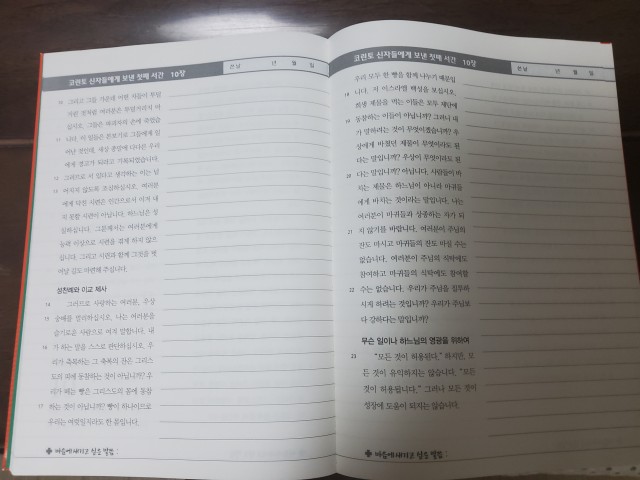 코린토 신자들에게 보낸 첫째 서간 10장
쓴날 년 월 일
10 그리고 그들 가운데 어떤 자들이 투덜
거린 것처럼 여러분은 투덜거리지 마
십시오. 그들은 파괴자의 손에 죽었습
11 니다. 이 일들은 본보기로 그들에게 일
어난 것인데, 세상 종말에 다다른 우리
에게 경고가 되라고 기록되었습니다.
12 그러므로 서 있다고 생각하는 이는 넘
13 어지지 않도록 조심하십시오. 여러분
에게 닥친 시련은 인간으로서 이겨 내
지 못할 시련이 아닙니다. 하느님은 성
실하십니다. 그분께서는 여러분에게
능력 이상으로 시련을 겪게 하지 않으
십니다. 그리고 시련과 함께 그것을 벗
어날 길도 마련해 주십니다.
성찬례와 이교 제사
14 그러므로 사랑하는 여러분, 우상
15 숭배를 멀리하십시오. 나는 여러분을
슬기로운 사람으로 여겨 말합니다. 내
16 가 하는 말을 스스로 판단하십시오. 우
리가 축복하는 그 축복의 잔은 그리스
도의 피에 동참하는 것이 아닙니까? 우
리가 떼는 빵은 그리스도의 몸에 동참
17 하는 것이 아닙니까? 빵이 하나이므로
우리는 여럿일지라도 한 몸입니다.
마음에 새기고 싶은 말씀 :
코린토 신자들에게 보낸 첫째 서간 10장
쓴날 년 월 일
우리 모두 한 빵을 함께 나누기 때문입
18 니다. 저 이스라엘 백성을 보십시오.
희생 제물을 먹는 이들은 모두 제단에
19 동참하는 이들이 아닙니까? 그러니 내
가 말하려는 것이 무엇이겠습니까? 우
상에게 바쳤던 제물이 무엇이라도 된
다는 말입니까? 우상이 무엇이라도 된
20 다는 말입니까? 아닙니다. 사람들이 바
치는 제물은 하느님이 아니라 마귀들
에게 바치는 것이라는 말입니다. 나는
여러분이 마귀들과 상종하는 자가 되
21 지 않기를 바랍니다. 여러분이 주님의
잔도 마시고 마귀들의 잔도 마실 수는
없습니다. 여러분이 주님의 식탁에도
참여하고 마귀들의 식탁에도 참여할
22 수는 없습니다. 우리가 주님을 질투하
시게 하려는 것입니까? 우리가 주님보
다 강하다는 말입니까?
무슨 일이나 하느님의 영광을 위하여
23 “모든 것이 허용된다.” 하지만, 모
든 것이 유익하지는 않습니다. “모든
것이 허용됩니다.” 그러나 모든 것이
성장에 도움이 되지는 않습니다.
마음에 새기고 싶은 말씀 :